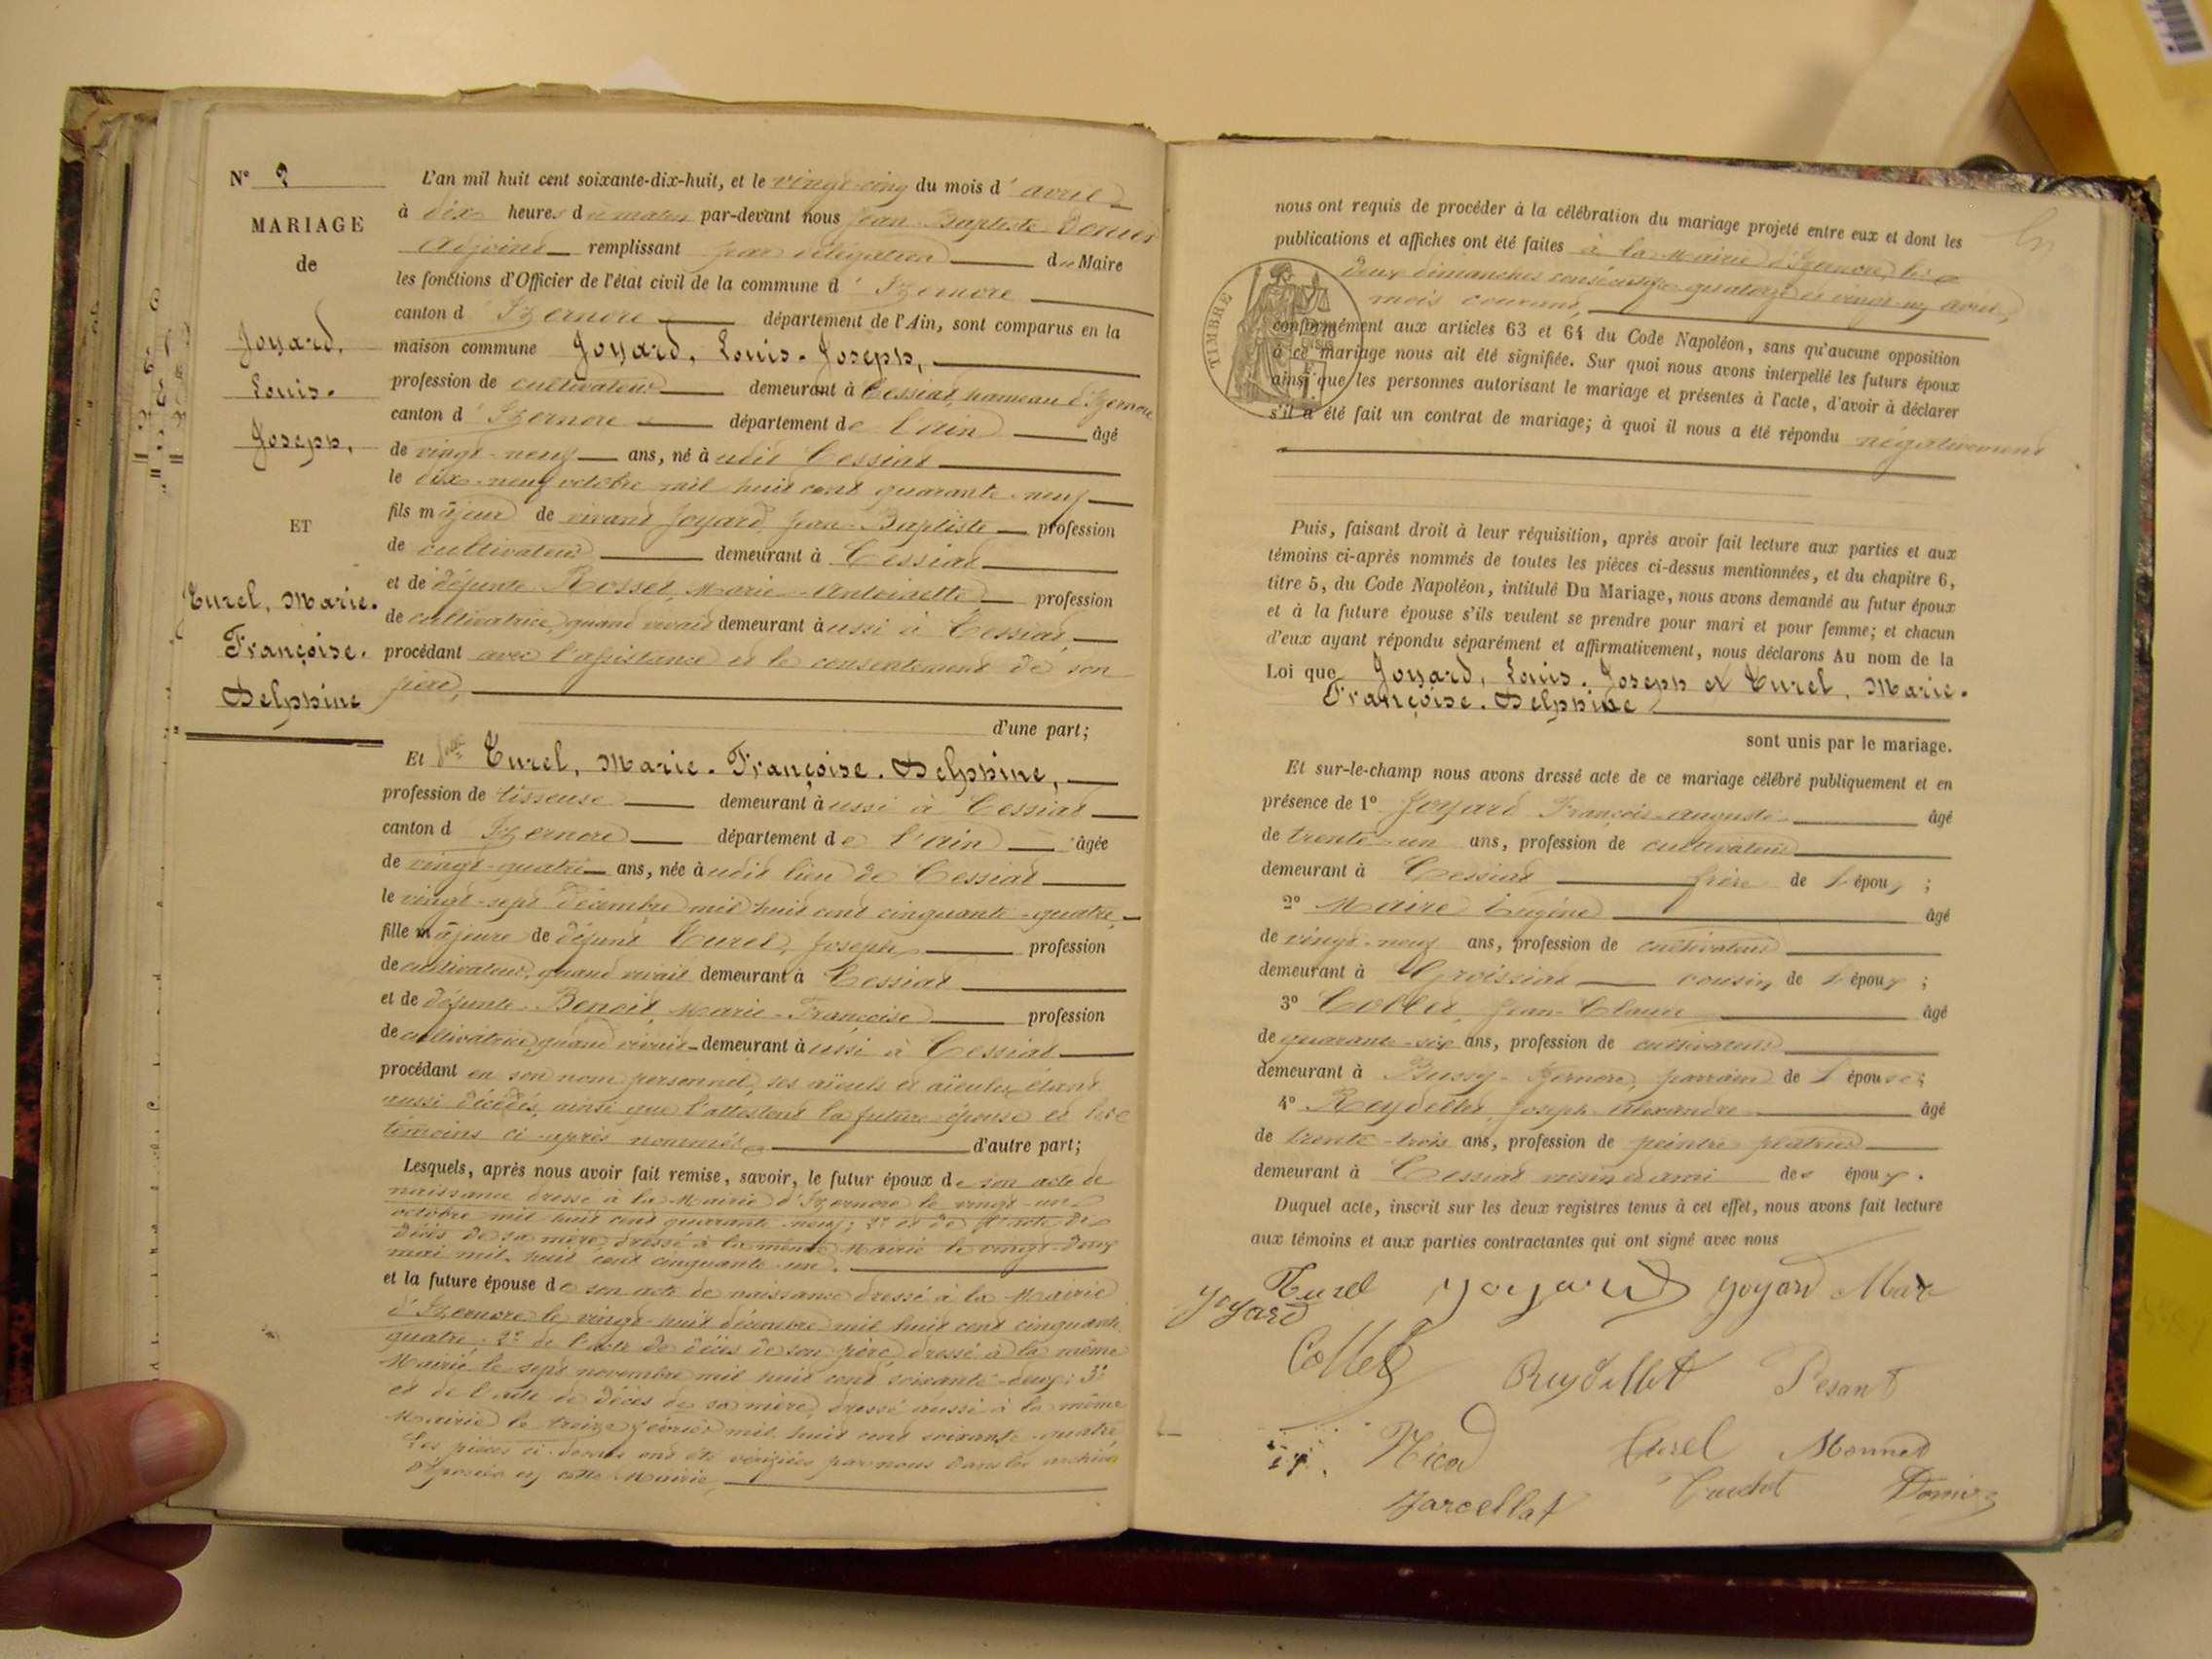 N° 2
MARIAGE
de
Joyard,
Louis-
Joseph,
ET
Turel, Marie-
Françoise-
Delphine
L'an mil huit cent soixante-dix-huit, et le vingt-cinq du mois d'avril
à dix heures du matin par-devant nous Jean-Baptiste
Adjoint remplissant par délégation du Maire
les fonctions d'Officier de l'état civil de la commune d'Izernore
canton d'Izernore département de l'Ain, sont comparus en la
maison commune Joyard, Louis-Joseph,
profession de cultivateur demeurant à Cessiat, hameau d'Izernore
canton d'Izernore département de l'Ain âgé
de vingt-neuf ans, né audit Cessiat
le dix-neuf octobre mil huit cent quarante-neuf
fils majeur de vivant Joyard, Jean-Baptiste profession
de cultivateur demeurant à Cessiat
et de défunte Rosset, Marie-Antoinette profession
de cultivatrice, quand vivait demeurant aussi à Cessiat,
procédant avec l'assistance et le consentement de son
père,
d'une part;
Et Turel, Marie-Françoise-Delphine,
profession de tisseuse demeurant aussi à Cessiat
canton d'Izernore département de l'Ain âgée
de vingt-quatre ans, née audit lieu de Cessiat
le vingt-sept décembre mil huit cent cinquante-quatre,
fille majeure de défunt Turel, Joseph profession
de cultivateur, quand vivait demeurant à Cessiat
et de défunte Benoit, Marie-Françoise profession
de cultivatrice, quand vivait demeurant aussi à Cessiat
procédant en son nom personnel, ses aïeuls et aïeules étant
aussi décédés, ainsi que l'attestent la future épouse et les
témoins ci-après nommés, d'autre part;
Lesquels, après nous avoir fait remise, savoir, le futur époux de son acte de
naissance dressé à la Mairie d'Izernore le vingt-un
octobre mil huit cent quarante-neuf; 2° et de l'acte de
décès de sa mère, dressé à la même Mairie le vingt-deux
mai mil huit cent cinquante-un.
et la future épouse de son acte de naissance dressé à la Mairie
d'Izernore le vingt-huit décembre mil huit cent cinquante-
quatre; 2° de l'acte de décès de son père, dressé à la même
Mairie, le sept novembre mil huit cent soixante-deux; 3°
et de l'acte de décès de sa mère, dressé aussi à la même
Mairie le treize février mil huit cent soixante-quatre
Les pièces ci-dessus ont été vérifiées par nous dans les archives
déposées en cette Mairie,
nous ont requis de procéder à la célébration du mariage projeté entre eux et dont les
publications et affiches ont été faites à la Mairie d'Izernore, les
deux dimanches consécutifs quatorze et vingt-un avril,
mois courant,
TIMBRE
conformément aux articles 63 et 64 du Code Napoléon, sans qu'aucune opposition
à ce mariage nous ait été signifiée. Sur quoi nous avons interpellé les futurs époux
ainsi que les personnes autorisant le mariage et présentes à l'acte, d'avoir à déclarer
s'il a été fait un contrat de mariage; à quoi il nous a été répondu négativement
Puis, faisant droit à leur réquisition, après avoir fait lecture aux parties et aux
témoins ci-après nommés de toutes les pièces ci-dessus mentionnées, et du chapitre 6,
titre 5, du Code Napoléon, intitulé Du Mariage, nous avons demandé au futur époux
et à la future épouse s'ils veulent se prendre pour mari et pour femme; et chacun
d'eux ayant répondu séparément et affirmativement, nous déclarons Au nom de la
Loi que Joyard, Louis-Joseph et Turel, Marie-
Françoise-Delphine
sont unis par le mariage.
Et sur-le-champ nous avons dressé acte de ce mariage célébré publiquement et en
présence de 1° Joyard François-Auguste âgé
de trente-un ans, profession de cultivateur
demeurant à Cessiat frère de l'époux;
2° Maire Eugène âgé
de vingt-neuf ans, profession de cultivateur
demeurant à Groissiat cousin de l'époux;
3° Collet, Jean-Claude âgé
de quarante-six ans, profession de cultivateur
demeurant à Bussy-Izernore, parrain de l'épouse;
4° Reydellet, Joseph-Alexandre âgé
de trente-trois ans, profession de peintre plâtrier
demeurant à Cessiat voisin et ami des époux.
Duquel acte, inscrit sur les deux registres tenus à cet effet, nous avons fait lecture
aux témoins et aux parties contractantes qui ont signé avec nous
Turel Joyard Joyard
Joyard
Collet Reydellet Pesant
Nicod Turel Monnet